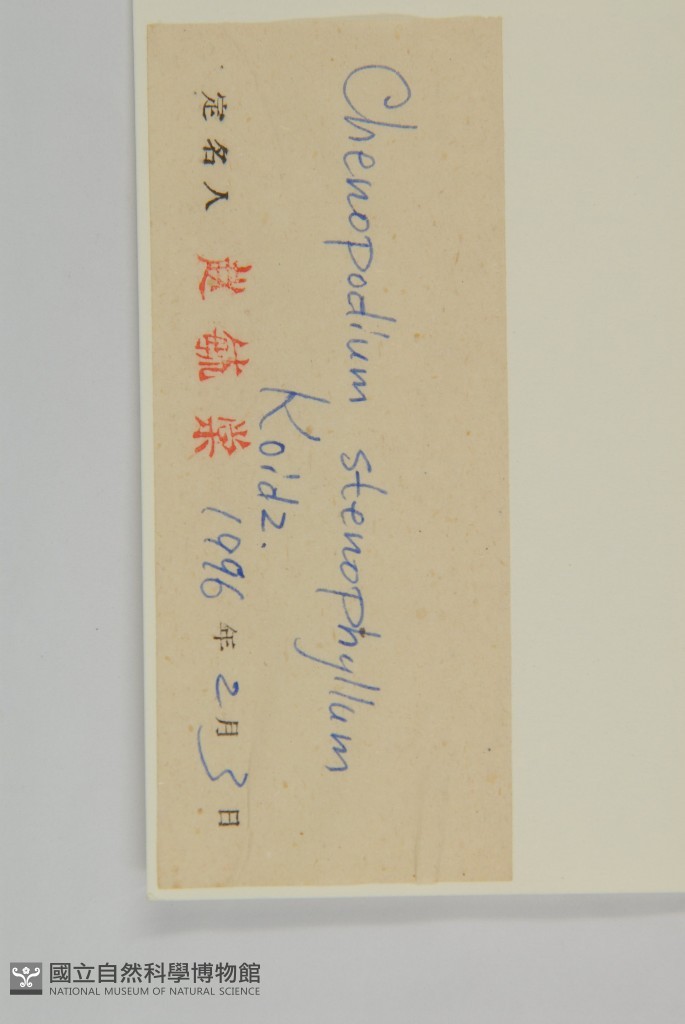 Chenopodium stenophyllum
Koidz.
定名人 赵毓棠 1996年2月3日
國立自然科學博物館
NATIONAL MUSEUM OF NATURAL SCIENCE